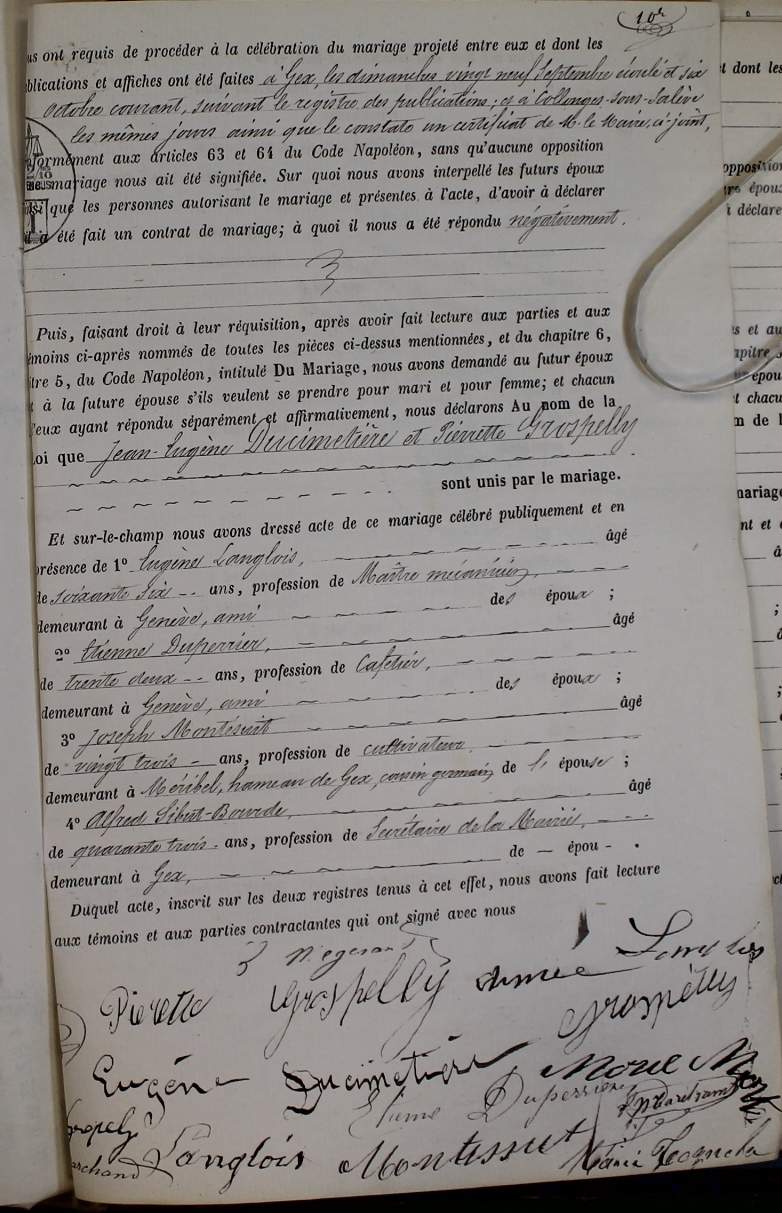 10e
us ont requis de procéder à la célébration du mariage projeté entre eux et dont les
blications et affiches ont été faites à Gex, les dimanches vingt neuf Septembre écoulé et six
octobre courant, suivant le registre des publications; et à Collonges-sous-Salève
les mêmes jours ainsi que le constate un certificat de M. le Maire, ci-joint,
formément aux articles 63 et 64 du Code Napoléon, sans qu'aucune opposition
mariage nous ait été signifiée. Sur quoi nous avons interpellé les futurs époux
si que les personnes autorisant le mariage et présentes à l'acte, d'avoir à déclarer
a été fait un contrat de mariage; à quoi il nous a été répondu négativement.
Puis, faisant droit à leur réquisition, après avoir fait lecture aux parties et aux
émoins ci-après nommés de toutes les pièces ci-dessus mentionnées, et du chapitre 6,
itre 5, du Code Napoléon, intitulé Du Mariage, nous avons demandé au futur époux
t à la future épouse s'ils veulent se prendre pour mari et pour femme; et chacun
'eux ayant répondu séparément et affirmativement, nous déclarons Au nom de la
oi que Jean-Eugène Ducimetière et Pierrette Grospelly
sont unis par le mariage.
Et sur-le-champ nous avons dressé acte de ce mariage célébré publiquement et en
présence de 1° Eugène Langlois, âgé
de soixante six ans, profession de Maître mécanicien,
demeurant à Genève, ami des époux ;
2° Etienne Duperrier, âgé
de trente deux ans, profession de Cafetier,
demeurant à Genève, ami des époux ;
3° Joseph Montésuit âgé
de vingt trois ans, profession de cultivateur
demeurant à Méribel, hameau de Gex, cousin germain de l' épouse ;
4° Alfred Sibut-Bourde, âgé
de quarante trois ans, profession de Secrétaire de la Mairie,
demeurant à Gex, de — épou - .
Duquel acte, inscrit sur les deux registres tenus à cet effet, nous avons fait lecture
aux témoins et aux parties contractantes qui ont signé avec nous
Pierette Grospelly aimée
Grospelly
Eugène Ducimetière
Etienne Duperrier
Langlois Montessuit
archand Maria